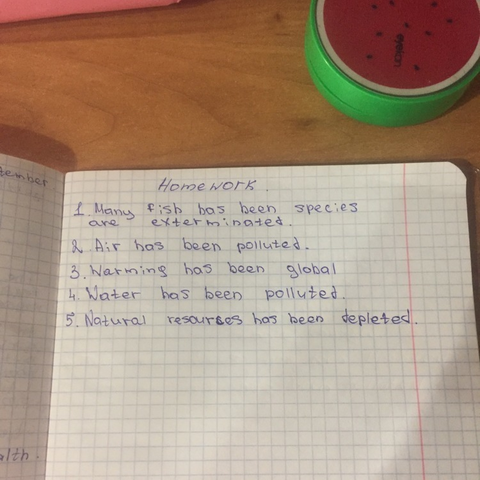 eyelon
tember
Homework.
1. Many fish has been species
are exterminated.
2. Air has been polluted.
3. Warming has been global
4. Water has been polluted.
5. Natural resourses has been depleted.
alth.